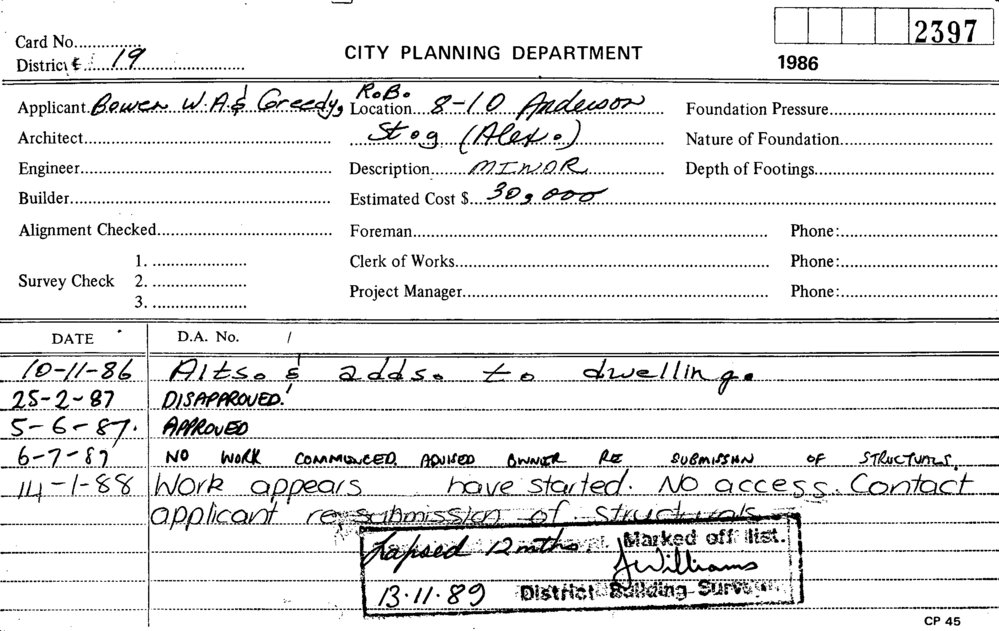 2397
Card No...............
CITY PLANNING DEPARTMENT
District 19
1986
Applicant Bowen W.A & Greedy, R.B. Location 8-10 Anderson Foundation Pressure
Architect St., (Alex.) Nature of Foundation
Engineer Description MINOR Depth of Footings
Builder Estimated Cost $ 30,000
Alignment Checked Foreman Phone:
1. Clerk of Works Phone:
Survey Check 2.
Project Manager Phone:
3.
DATE D.A. No. /
10-11-86 Alts. & adds. to dwelling.
25-2-87 DISAPPROVED!
5-6-87. APPROVED
6-7-87 NO WORK COMMENCED. ADVISED OWNER RE SUBMISSION OF STRUCTURALS.
14-1-88 Work appears have started. No access. Contact
applicant re-submission of structurals
Lapsed 12 mths Marked off list.
J Williams
13.11.89 District Building Surveyor
CP 45